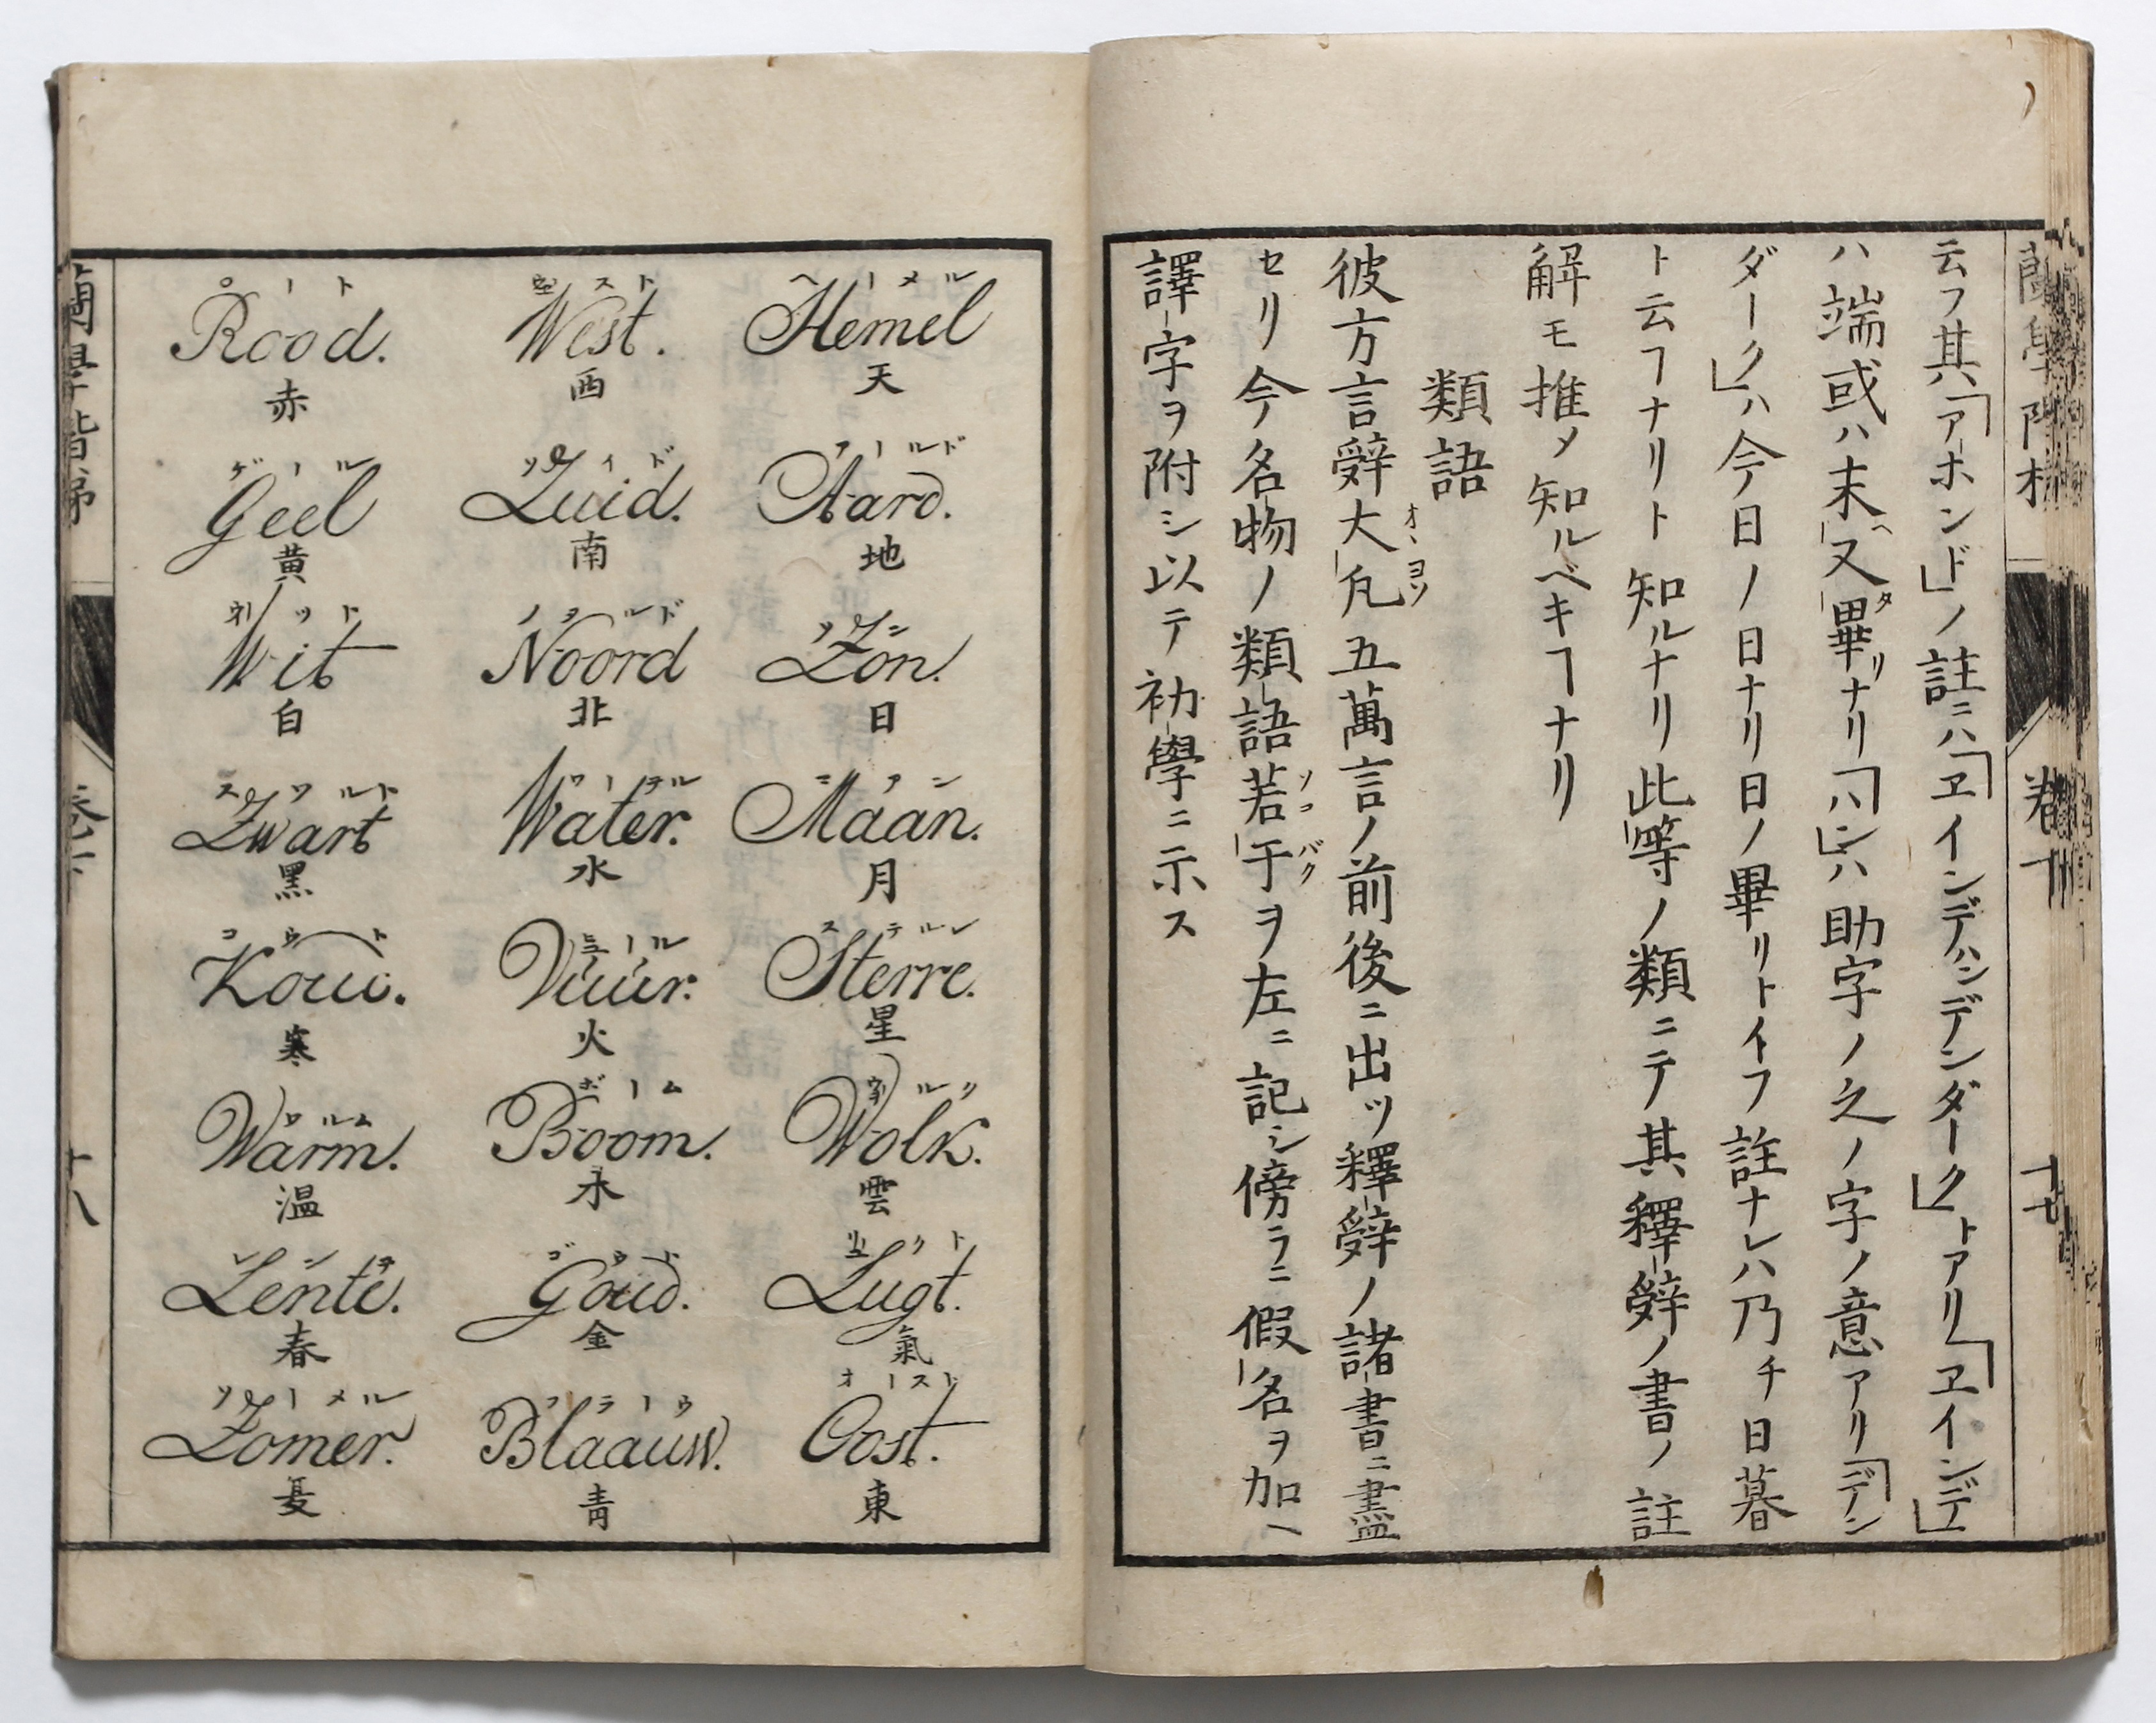 云フ其「アーホンド」ノ註ニハ「ヱインデハンデンダーク」トアリ「ヱインデ」
ハ端或ハ末又畢リナリ「ハン」ハ助字ノ之ノ字ノ意アリ「デン
ダーク」ハ今日ノ日ナリ日ノ畢リトイフ註ナレハ乃チ日暮
ト云フヿナリト知ルナリ此等ノ類ニテ其釋辭ノ書ノ註
解モ推メ知ルベキヿナリ
類語
彼方言辭大凡五萬言ノ前後ニ出ツ釋辭ノ諸書ニ盡
セリ今名物ノ類語若干ヲ左ニ記シ傍ラニ假名ヲ加ヘ
譯字ヲ附シ以テ初學ニ示ス
ヘーメル
Hemel
天
アールド
Aard.
地
ゾン
Zon.
日
マアン
Maan.
月
ステルレ
Sterre.
星
Wolk.
雲
Lugt.
氣
オースト
Oost.
東
West.
西
Zuid.
南
ノヲルド
Noord
北
ワーテル
Water.
水
Vuur.
火
ボーム
Boom.
木
ゴウド
Goud.
金
ブラーウ
Blaauw.
青
ロート
Rood.
赤
ゲール
Geel
黄
Wit
白
スワルト
Zwart
黑
コウト
Kouw.
寒
ワルム
Warm.
温
レンテ
Lente.
春
ソーメル
Zomer.
夏
蘭學階梯
十八